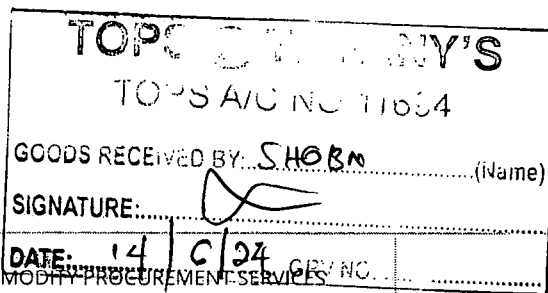 TOPS Y'S
TOPS A/C NO 11694
GOODS RECEIVED BY: SHOBN (Name)
SIGNATURE:
DATE: 14 / 6 / 24 GRV NO.
MODITY PROCUREMENT SERVICES